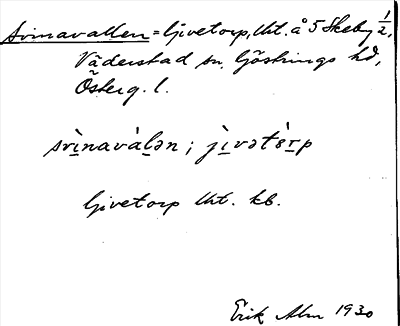 Svinavallen = Ljivetorp, lht. å 5 Skeby 1/2,
Väderstad sn, Göstrings hd,
Österg. l.
svìnavàlən ; jìvətòrp
Ljivetorp lht. kb.
Erik Alm 1930